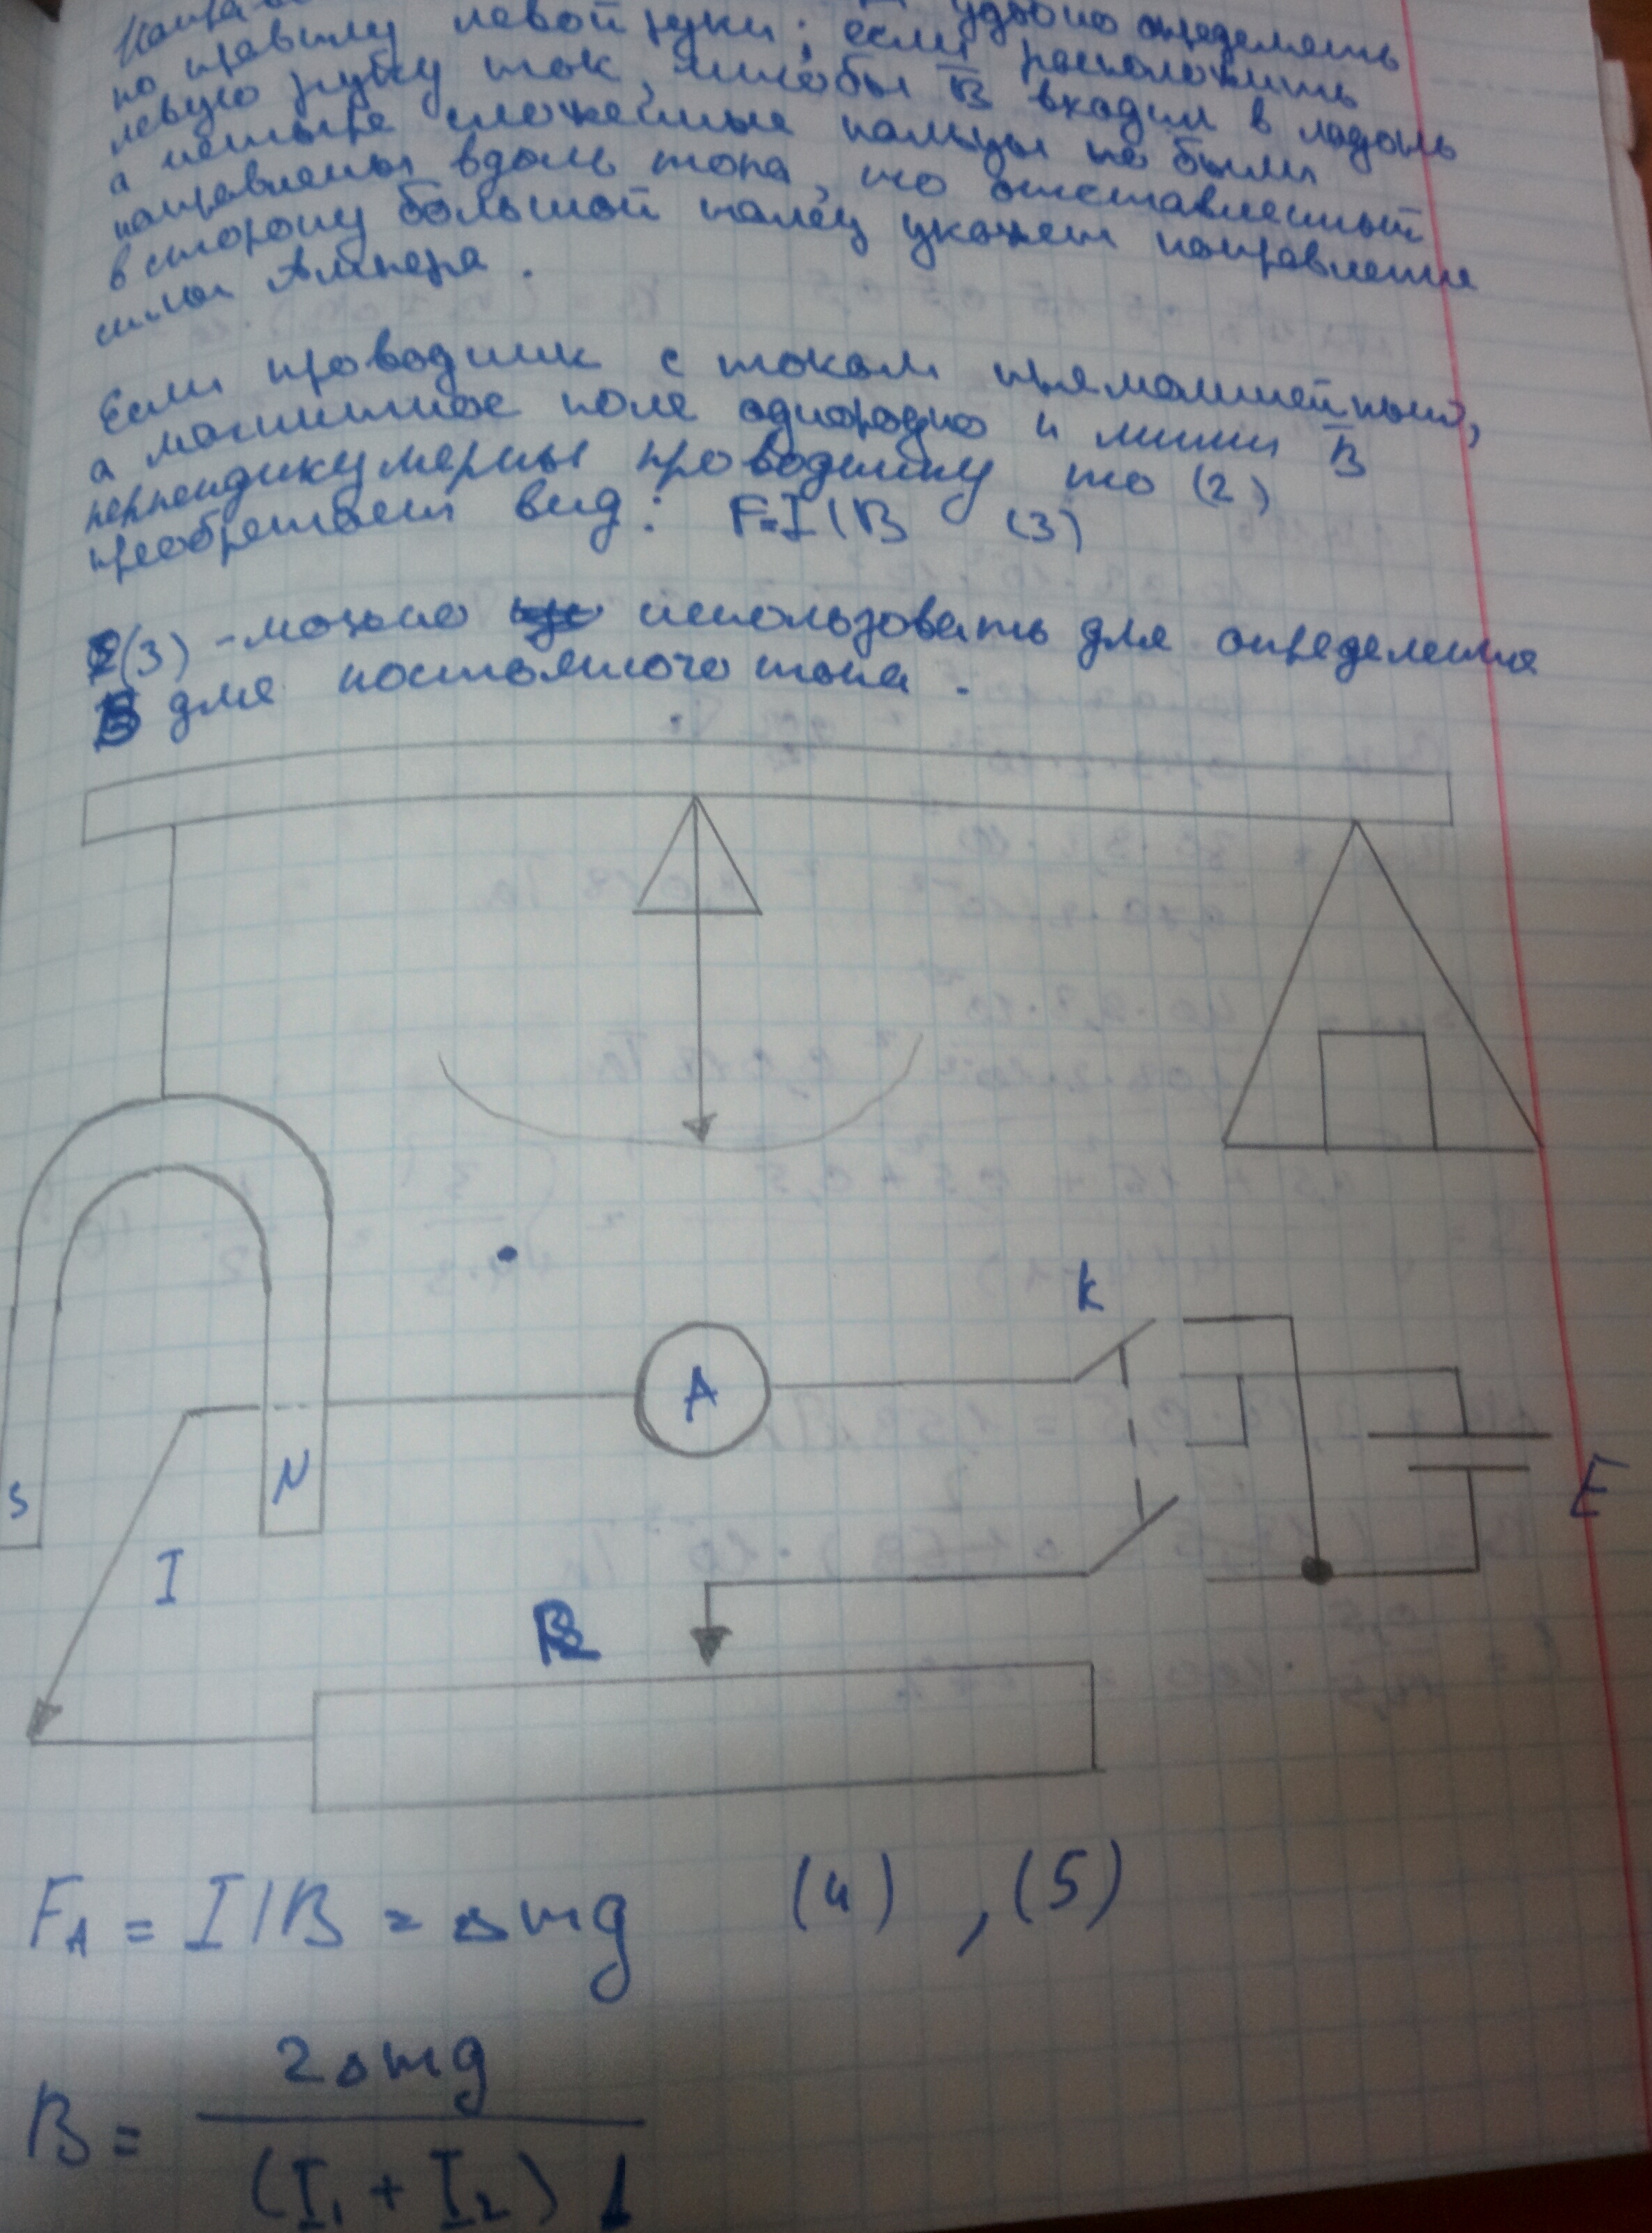 удобно определять
по правилу левой руки; если расположить
левую руку так, чтобы B̅ входил в ладонь
а четыре сложенные пальцы были
направлены вдоль тока, то отставленный
в сторону большой палец укажет направление
силы Ампера.
Если проводник с током прямолинейный,
а магнитное поле однородно и линии B̅
перпендикулярны проводнику то (2)
преобретает вид: F=IlB (3)
(3) - можно использовать для определения
B для постоянного тока.
k
A
S
N
E
I
R
F_A = IlB = Δmg (4), (5)
B = 2Δmg / (I₁ + I₂) l